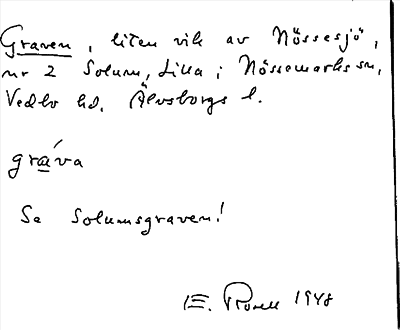 Graven, liten vik av Nössesjö,
nr 2 Solum, Lilla i Nössemarks sn,
Vedbo hd. Älvsborgs l.
gráva
Se Solumsgraven!
E. Rosell 1948